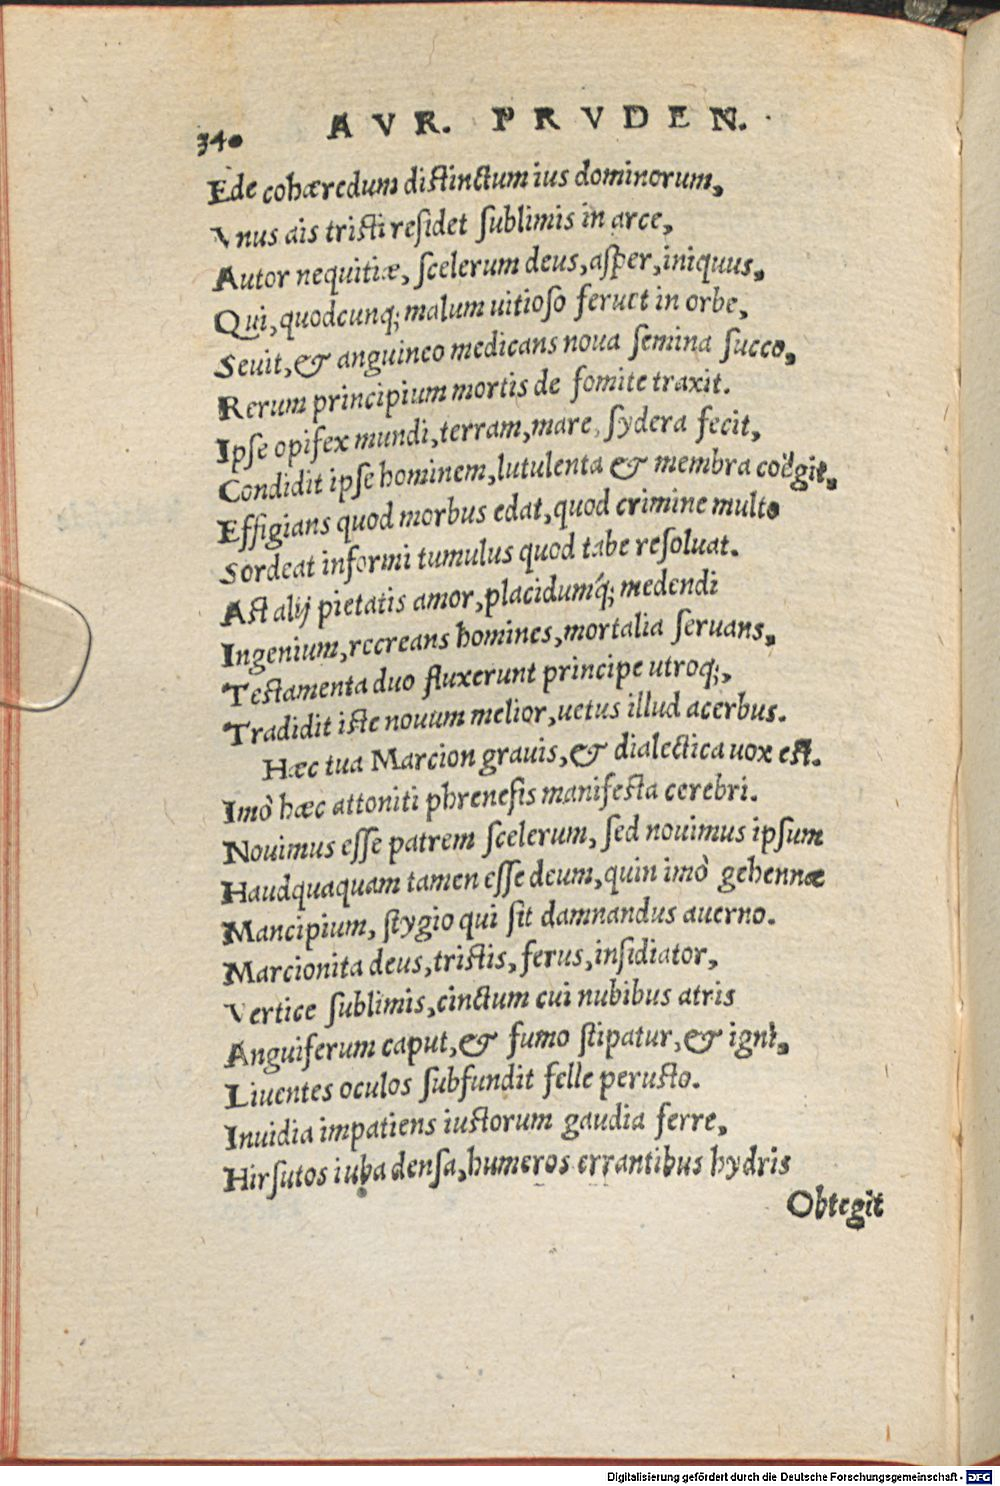 340 AVR. PRVDEN.
Ede cohæredum distinctum ius dominorum,
Vnus ais tristi residet sublimis in arce,
Autor nequitiæ, scelerum deus, asper, iniquus,
Qui, quodcunq; malum uitioso feruet in orbe,
Seuit, & anguineo medicans noua semina succo,
Rerum principium mortis de fomite traxit.
Ipse opifex mundi, terram, mare, sydera fecit,
Condidit ipse hominem, lutulenta & membra coëgit,
Effigians quod morbus edat, quod crimine multo
Sordeat informi tumulus quod tabe resoluat.
Ast alij pietatis amor, placidumq́; medendi
Ingenium, recreans homines, mortalia seruans,
Testamenta duo fluxerunt principe utroq;,
Tradidit iste nouum melior, uetus illud acerbus.
Hæc tua Marcion grauis, & dialectica uox est.
Imò hæc attoniti phrenesis manifesta cerebri.
Nouimus esse patrem scelerum, sed nouimus ipsum
Haudquaquam tamen esse deum, quin imò gehennæ
Mancipium, stygio qui sit damnandus auerno.
Marcionita deus, tristis, ferus, insidiator,
Vertice sublimis, cinctum cui nubibus atris
Anguiferum caput, & fumo stipatur, & igni,
Liuentes oculos subfundit felle perusto.
Inuidia impatiens iustorum gaudia ferre,
Hirsutos iuba densa, humeros errantibus hydris
Obtegit
Digitalisierung gefördert durch die Deutsche Forschungsgemeinschaft - DFG